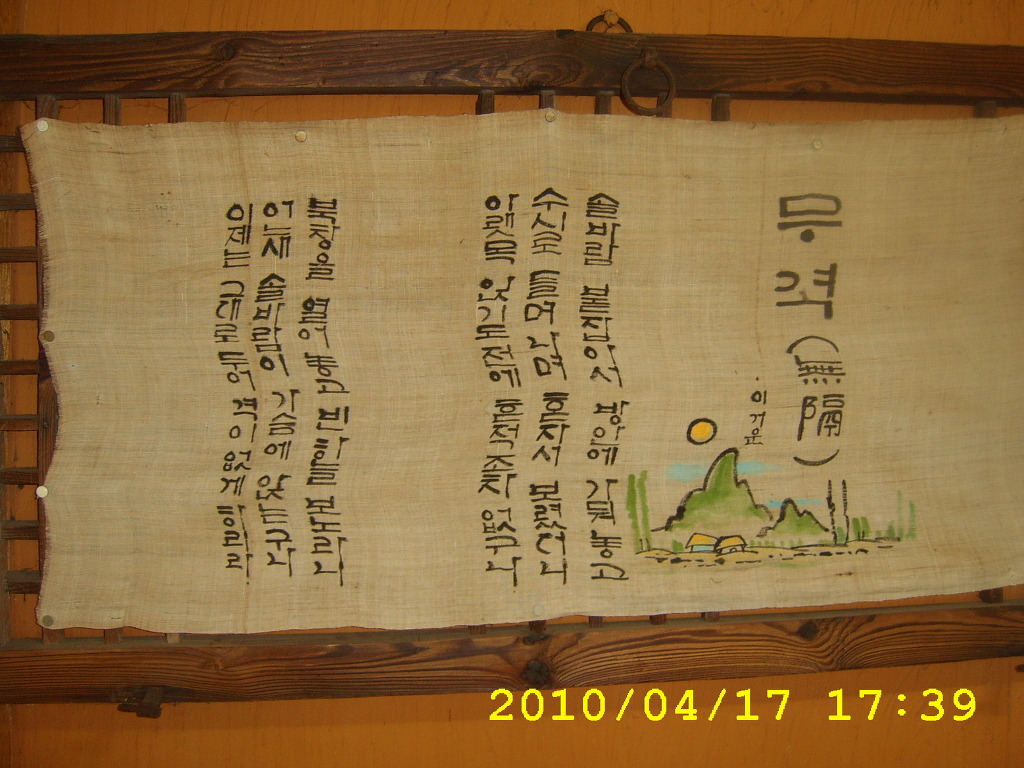 무격(無隔)
솔바람 붙잡아서 방안에 가둬 놓고
수시로 들며 나며 혼자서 보렸더니
아랫목 앉기도전에 흔적조차 없구나
북창을 열어 놓고 빈하늘 보노라니
어느새 솔바람이 가슴에 앉는구나
이제는 격이 없게 하리라
2010/04/17 17:39